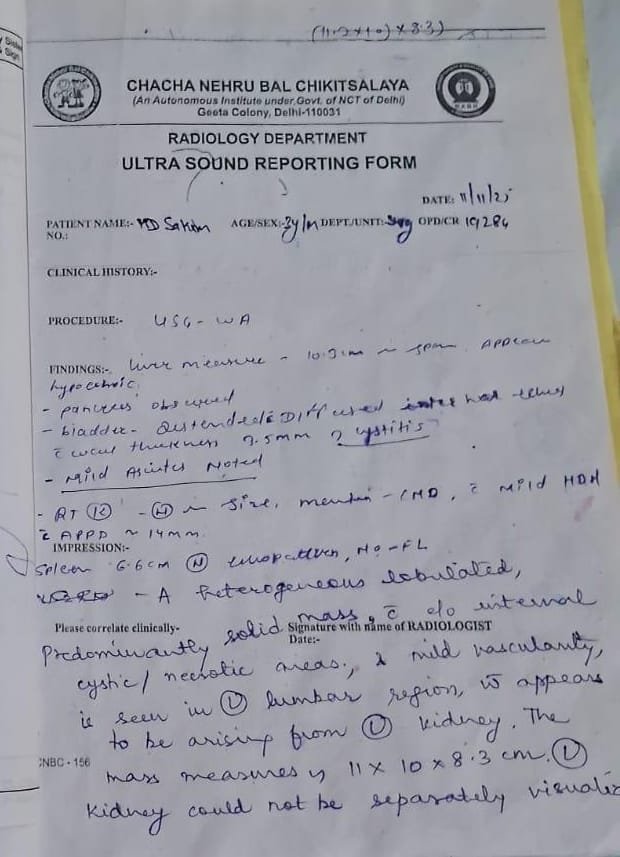 (11.2x10) x 8.3)
CHACHA NEHRU BAL CHIKITSALAYA
(An Autonomous Institute under Govt. of NCT of Delhi)
Geeta Colony, Delhi-110031
RADIOLOGY DEPARTMENT
ULTRA SOUND REPORTING FORM
DATE: 11/11/25
PATIENT NAME:- MD AGE/SEX:- 3y/M DEPT./UNIT:- OPD/CR
NO.:
CLINICAL HISTORY:-
PROCEDURE:- USG - WA
FINDINGS:- Liver measure - 10.3 cm in span. Appear
- pancreas obscured
- bladder - Distended c internal echoes
c wall thickness 7.5mm ? cystitis
- Mild Ascites Noted
- RT (K) - (N) in size, maintain - CMD, c Mild HDN
c APPD ~ 14mm.
IMPRESSION:-
Spleen 6.6cm (N) echopattern, No - FL
- A heterogeneous lobulated,
Please correlate clinically- Signature with name of RADIOLOGIST
Date:-
Predominantly solid mass, c e/o internal
cystic/ necrotic areas, & mild vascularity,
is seen in (L) lumbar region, appears
to be arising from (L) kidney. The
mass measures 11 x 10 x 8.3 cm. (L)
CNBC - 156
kidney could not be separately